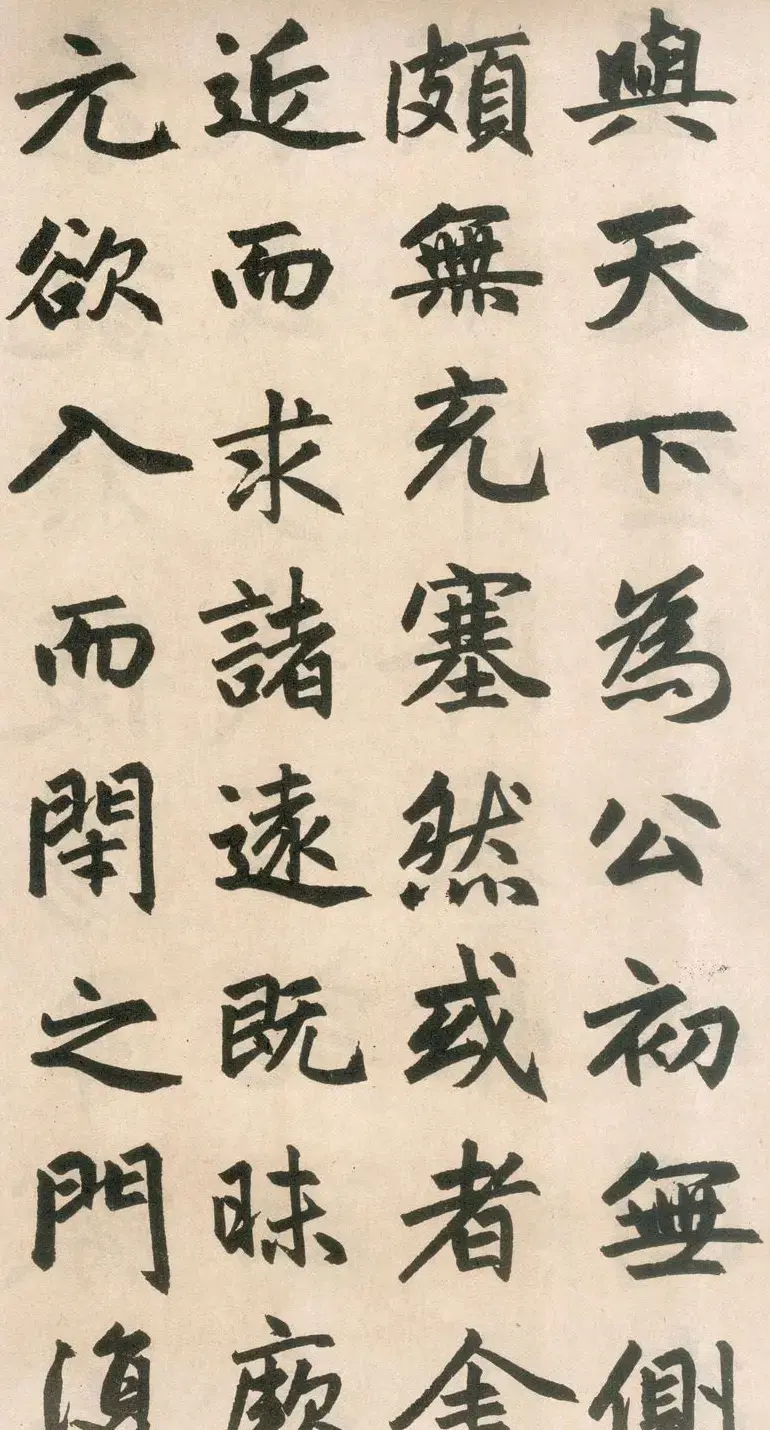 與天下為公初無側
頗無充塞然或者舍
近而求諸遠既昧厥
元欲入而閈之門須